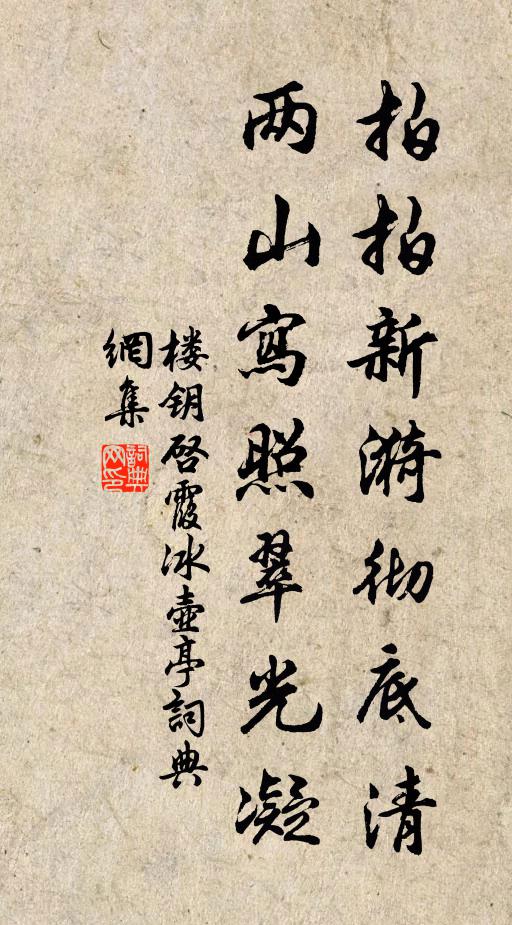 拍拍新漪彻底清
两山寫照翠光凝
楼钥启霞冰壶亭詞典
網集
詞典
网印